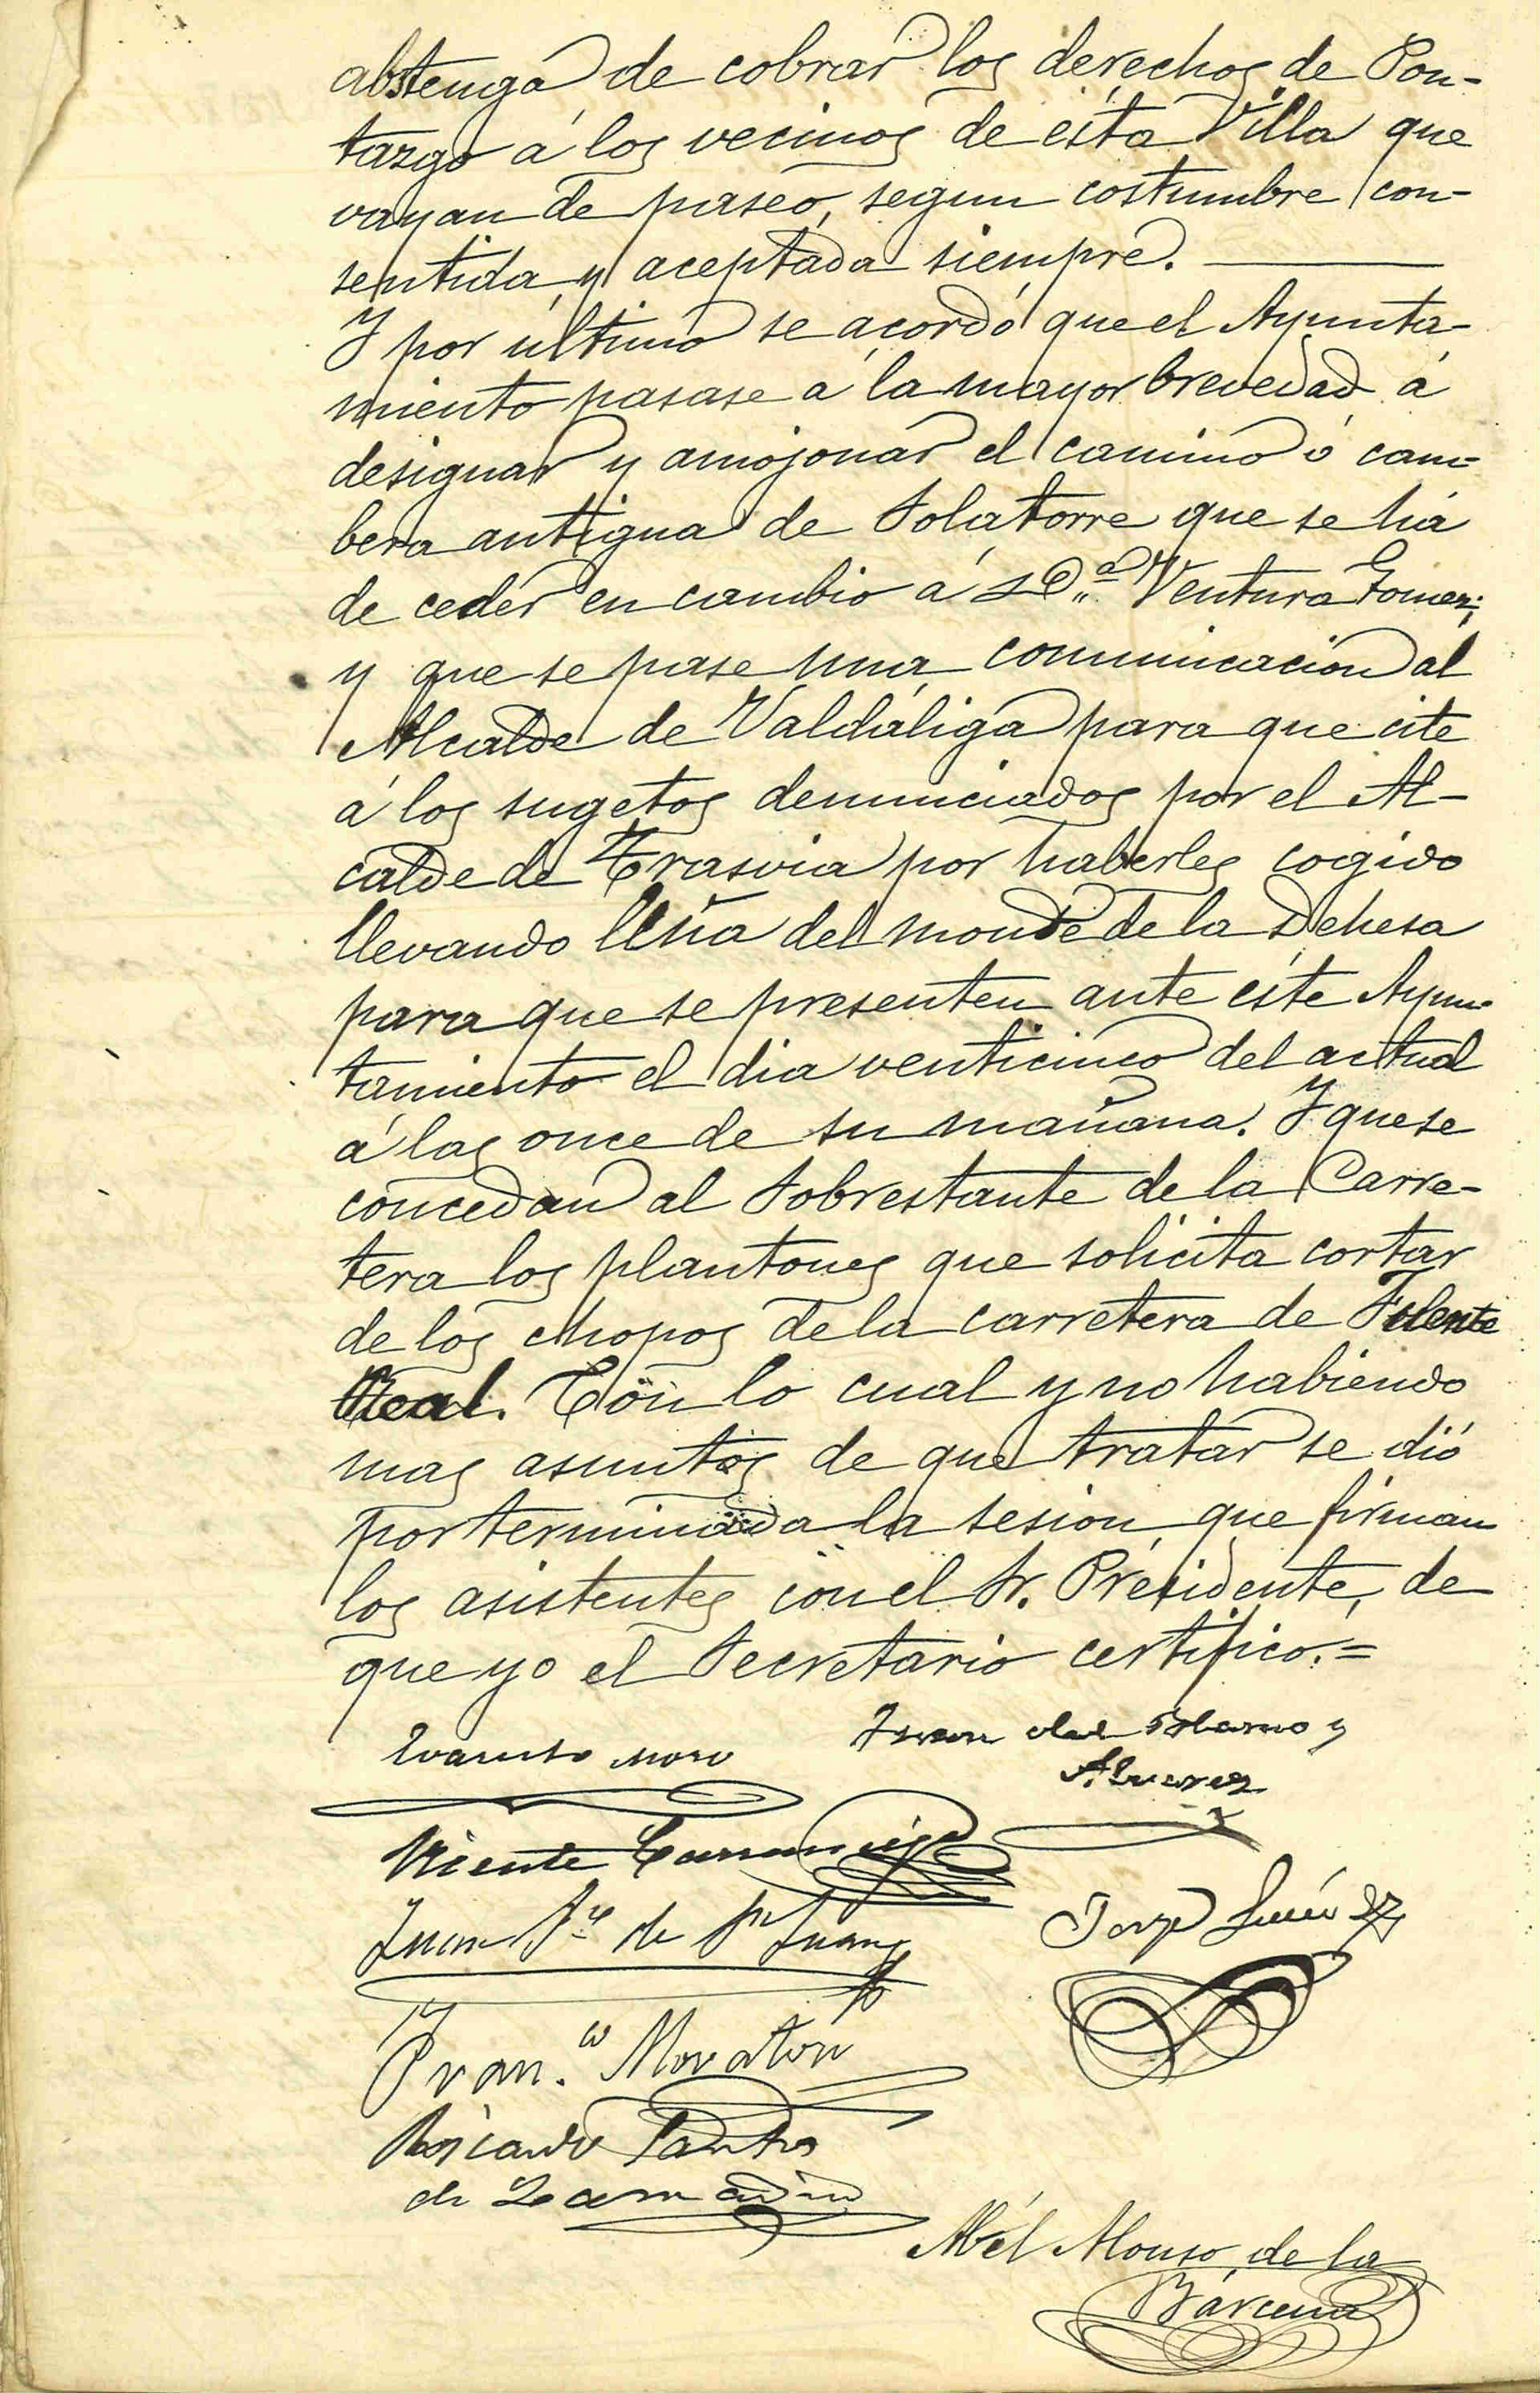 abstenga de cobrar los derechos de Pon-
tazgo á los vecinos de esta Villa que
vayan de paseo, segun costumbre con-
sentida y aceptada siempre.
Y por último se acordó que el Ayunta-
miento pasase á la mayor brevedad á
designar y amojonar el camino ó cam-
bera antigua de Solatorre que se há
de ceder en cambio á D.ª Ventura Gomez;
y que se pase una comunicacion al
Alcalde de Valdáliga para que cite
á los sugetos denunciados por el Al-
calde de Trasvia por haberles cogido
llevando leña del monte de la Dehesa
para que se presenten ante éste Ayun-
tamiento el dia venticinco del actual
á las once de su mañana. Y que se
concedan al Sobrestante de la Carre-
tera los plantones que solicita cortar
de los chopos de la carretera de Fuente
Real. Con lo cual y no habiendo
mas asuntos de que tratar se dió
por terminada la sesion que firman
los asistentes con el Sr. Presidente, de
que yo el Secretario certifico.=
Evaristo Moro
Juan del y
Alvarez
Vicente
Juan de Juan
Jorge
Fran.co Moratón
Ricardo Santos
de
Abél Alonso de la
Bárcena